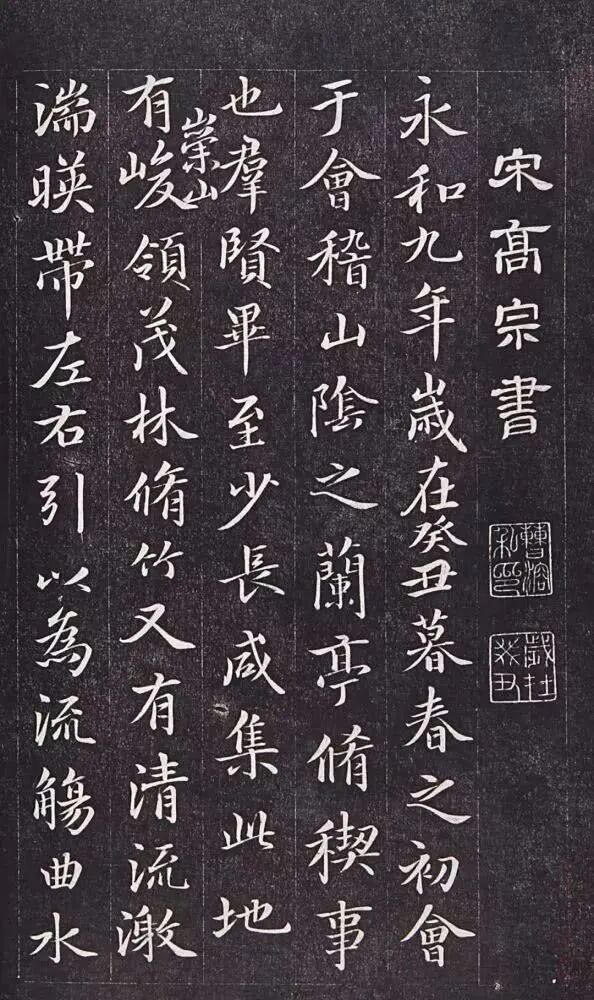 宋髙宗書
曹溶私印
歲在癸丑
永和九年歲在癸丑暮春之初會
于會稽山陰之蘭亭脩稧事
也羣賢畢至少長咸集此地
有崇山峻領茂林脩竹又有清流激
湍暎帶左右引以為流觴曲水